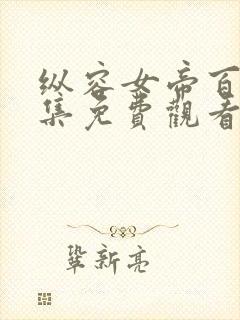 纵容女帝百
集免費觀看
鞏新亮